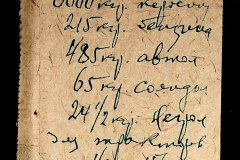 6000 кгр. керосину
215 кгр. бензина
485 кгр. автол
65 кгр. солидол
24 1/2 кгр. нигрол
для тракторов